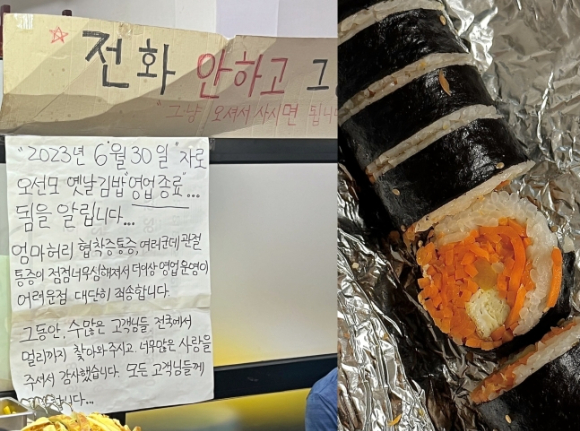 전화 안하고 그
그냥 오셔서 사시면 됩니
"2023년 6월 30일"자로
오선모 옛날김밥 "영업종료"...
됨을 알립니다...
엄마허리 협착증통증, 여러군데 관절
통증이 점점너무심해져서 더이상 영업운영이
어려운점 대단히 죄송합니다.
그동안, 수많은 고객님들, 전국에서
멀리까지 찾아와주시고, 너무많은 사랑을
주셔서 감사했습니다. 모든 고객님들께